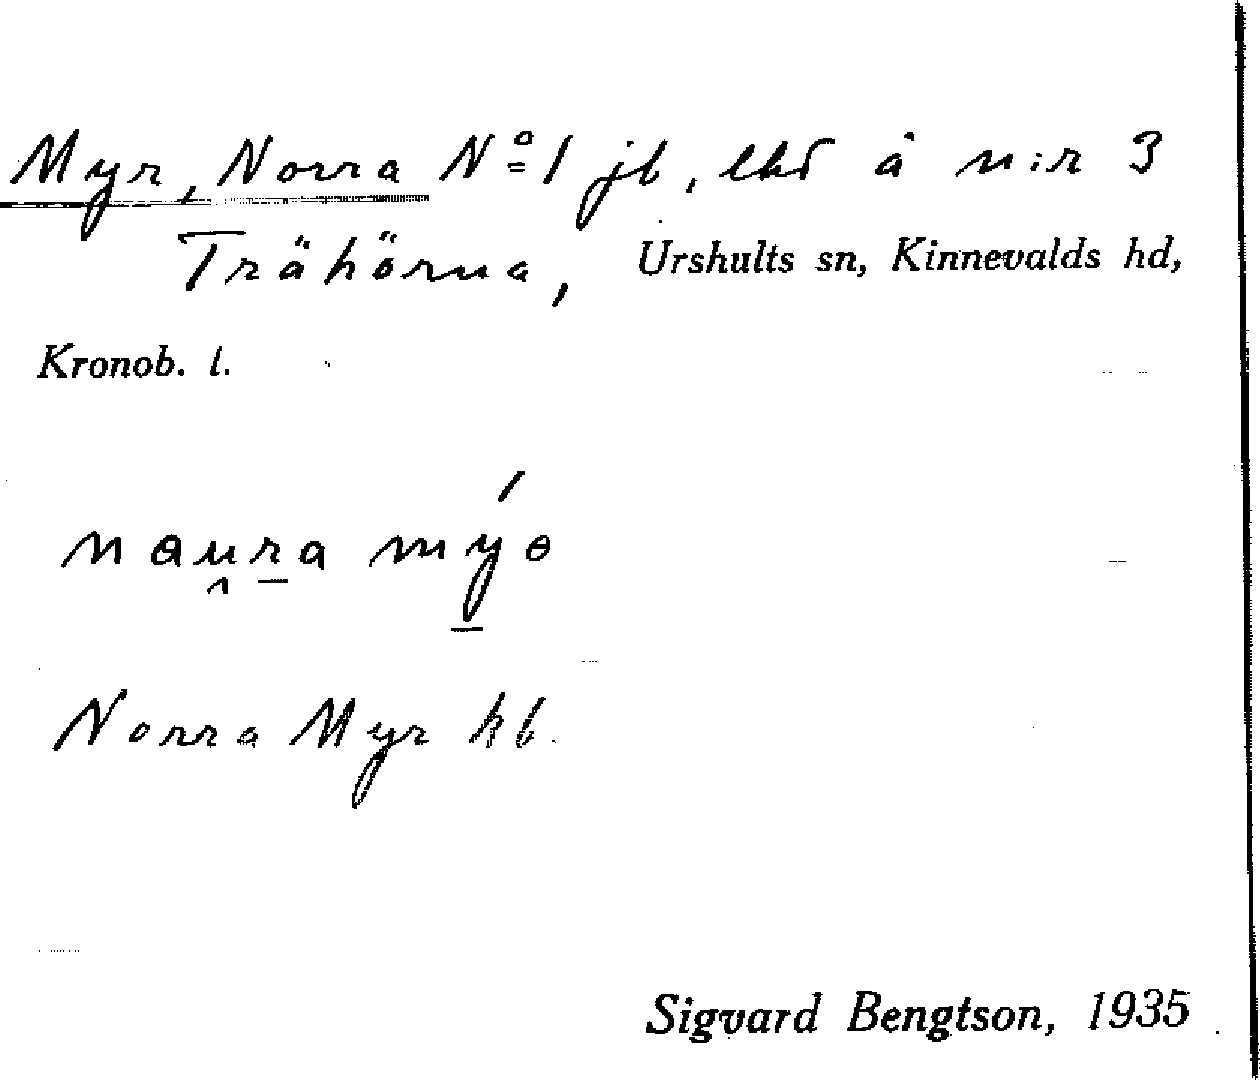 Myr, Norra Nº 1 jb, lhd å n:r 3
Trähörna, Urshults sn, Kinnevalds hd,
Kronob. l.
naura mýə
Norra Myr kb.
Sigvard Bengtson, 1935